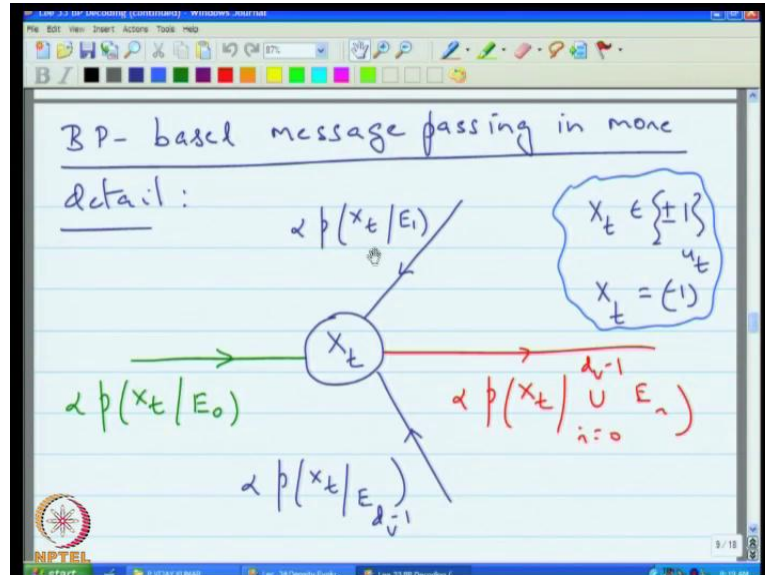 Lec 33 BP Decoding (continued) - Windows Journal
File Edit View Insert Actions Tools Help
87%
B I
BP- based message passing in more
detail :
α p(X_t / E_1)
X_t ∈ {± 1}
X_t = (-1)^{u_t}
X_t
α p(X_t / E_0)
α p(X_t | ∪_{i=0}^{d_v-1} E_i)
α p(X_t / E_{d_v-1})
9 / 18
NPTEL
start